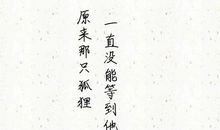 原来那只狐狸
一直没能等到他